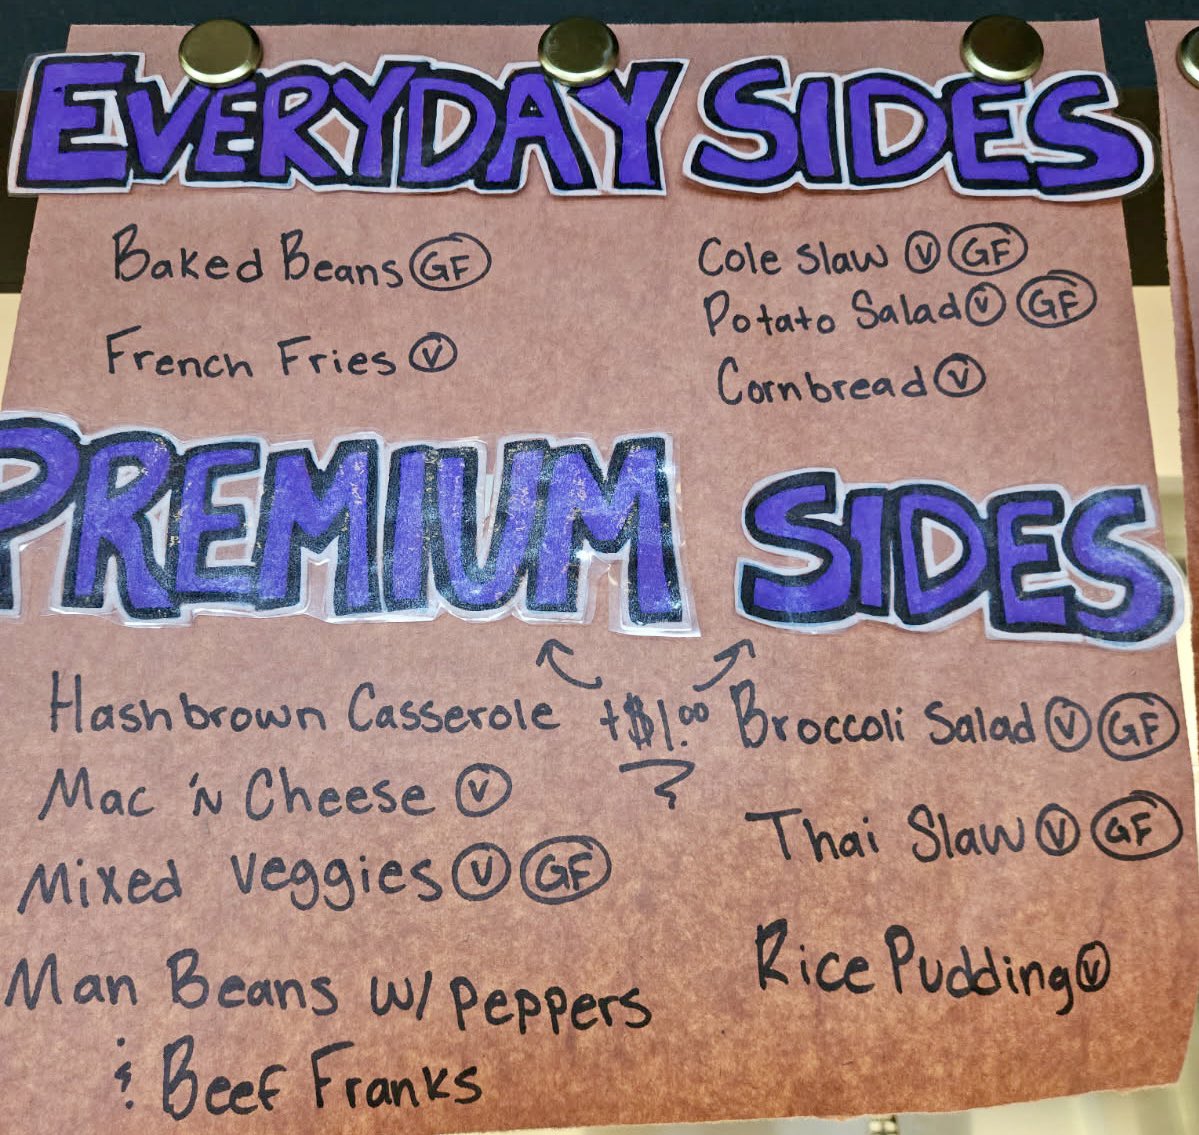 EVERYDAY SIDES
Baked Beans GF
French Fries V
Cole Slaw V GF
Potato Salad V GF
Cornbread V
PREMIUM SIDES
+$1.00
Hashbrown Casserole
Mac 'N Cheese V
Mixed Veggies V GF
Man Beans w/ Peppers
& Beef Franks
Broccoli Salad V GF
Thai Slaw V GF
Rice Pudding V